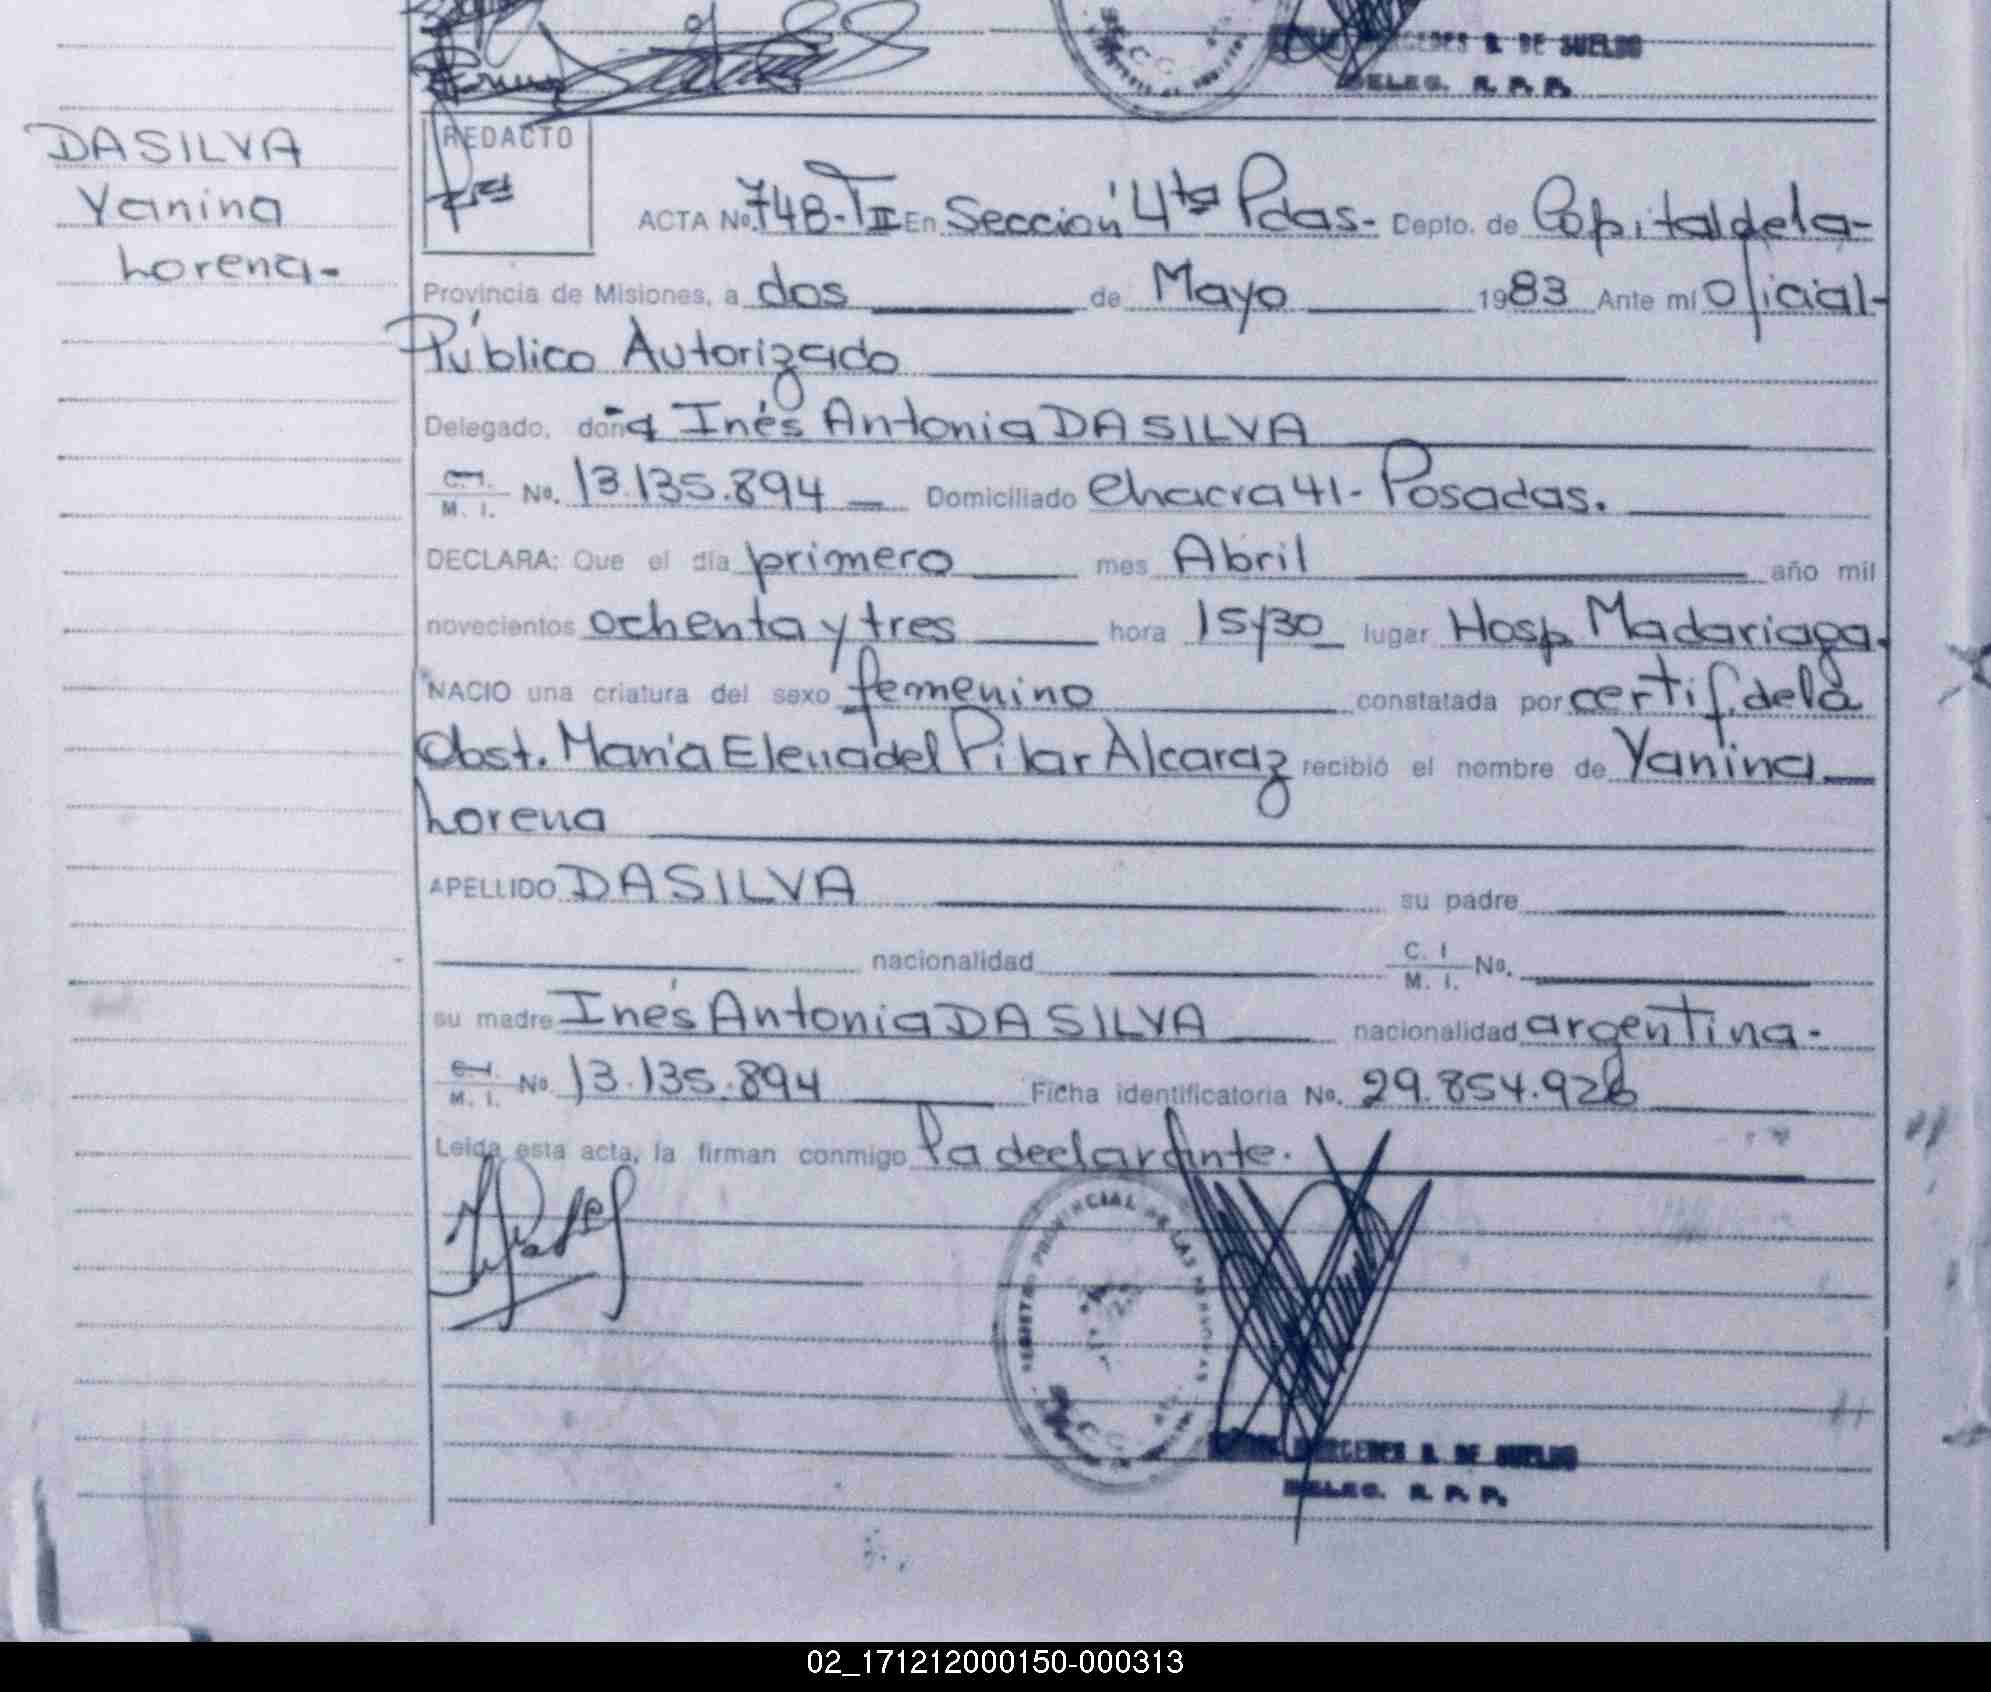 MERCEDES B. DE SUELDO
DELEG. R. P. P.
DA SILVA
Yanina
Lorena-
REDACTO
ACTA No. 748-TII En Sección 4ta Pdas- Depto. de Capital de la-
Provincia de Misiones, a dos de Mayo 1983 Ante mí oficial-
Público Autorizado
Delegado, doña Inés Antonia DA SILVA
C. I. M. I. No. 13.135.894 Domiciliado Chacra 41- Posadas.
DECLARA: Que el día primero mes Abril año mil
novecientos ochenta y tres hora 15y30 lugar Hosp. Madariaga.
NACIO una criatura del sexo femenino constatada por certif. de la
Obst. María Elena del Pilar Alcaraz recibió el nombre de Yanina
Lorena
APELLIDO DA SILVA su padre
nacionalidad C. I. M. I. No.
su madre Inés Antonia DA SILVA nacionalidad argentina-
C. I. M. I. No 13.135.894 Ficha identificatoria No. 29.854.926
Leída esta acta, la firman conmigo la declarante.
REGISTRO PROVINCIAL DE LAS PERSONAS
MERCEDES B. DE SUELDO
DELEG. R. P. P.
02_171212000150-000313